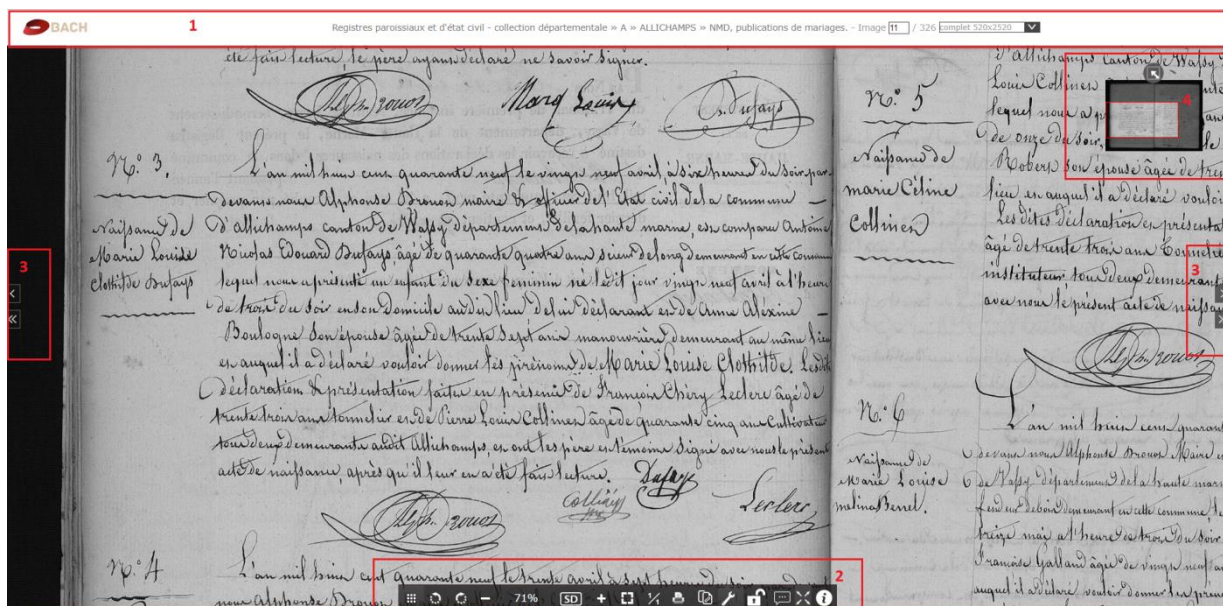 BACH
1
Registres paroissiaux et d'état civil - collection départementale » A » ALLICHAMPS » NMD, publications de mariages. - Image 11 / 326 complet 520x2520
été fait lecture, le père ayant déclaré ne savoir signer.
Marq Louis
Dufays
N.° 3.
Naissance de
Marie Louise
Clothilde Dufays
L'an mil huit cent quarante neuf le vingt neuf avril, à six heures du soir par
devant nous Alphonse Drouot maire & officier de l'Etat civil de la commune
d'allichamps canton de Wassy département de la haute marne, est comparu Antoine
Nicolas Edouard Dufays, âgé de quarante quatre ans scieur de long demeurant en cette commune
lequel nous a présenté un enfant du sexe feminin né ledit jour vingt neuf avril à l'heure
de trois du soir en son domicile audit lieu de lui déclarant et de Anne Aléxine
Boulogne son épouse âgée de trente sept ans manouvrière demeurant au même lieu
et auquel il a déclaré vouloir donner les prénoms de Marie Louise Clothilde. Lesdites
déclaration & présentation faites en présence de François Chéry Leclerc âgé de
trente trois ans tonnelier et de Pierre Louis Collinet âgé de quarante cinq ans Cultivateur
tous deux demeurants audit Allichamps, et ont les père et témoins signé avec nous le présent
acte de naissance, après qu'il leur en a été fait lecture.
Dufays
Leclerc
N.° 4
L'an mil huit cent quarante neuf le trente avril à sept heures du soir
nous Alphonse Drouot
N.° 5
Naissance de
marie Céline
Collinet
d'allichamps canton de Wassy
Louis Collinet
lequel nous a
de onze du soir,
Robert son épouse âgée de
lieu et auquel il a déclaré vouloir
Les dites déclaration et
âgé de trente trois ans Tonnelier
instituteur, tous deux demeurant
avec nous le présent acte de
N.° 6
Naissance de
Marie Louise
melina
L'an mil huit cent
devant nous Alphonse Drouot Maire
de Wassy département de la haute
demeurant en cette commune,
treize mai à l'heure de trois du soir
Françoise Galland âgée de vingt neuf
auquel il a déclaré vouloir donner les
3
3
4
2
71%
SD